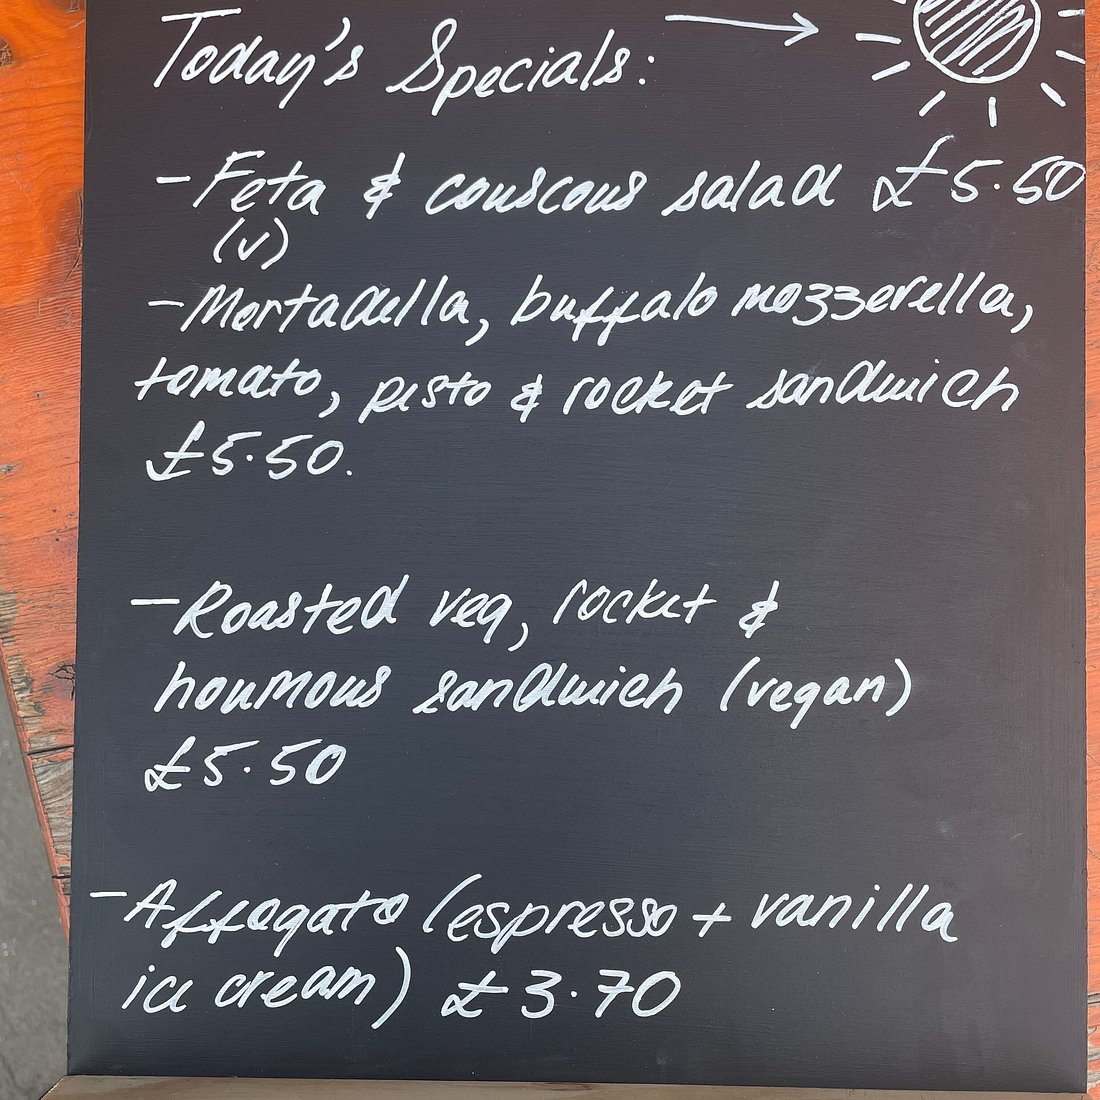 Today's Specials:
- Feta & couscous salad £5.50
(v)
- Mortadella, buffalo mozzerella,
tomato, pesto & rocket sandwich
£5.50.
- Roasted veg, rocket &
houmous sandwich (vegan)
£5.50
- Affogato (espresso + vanilla
ice cream) £3.70